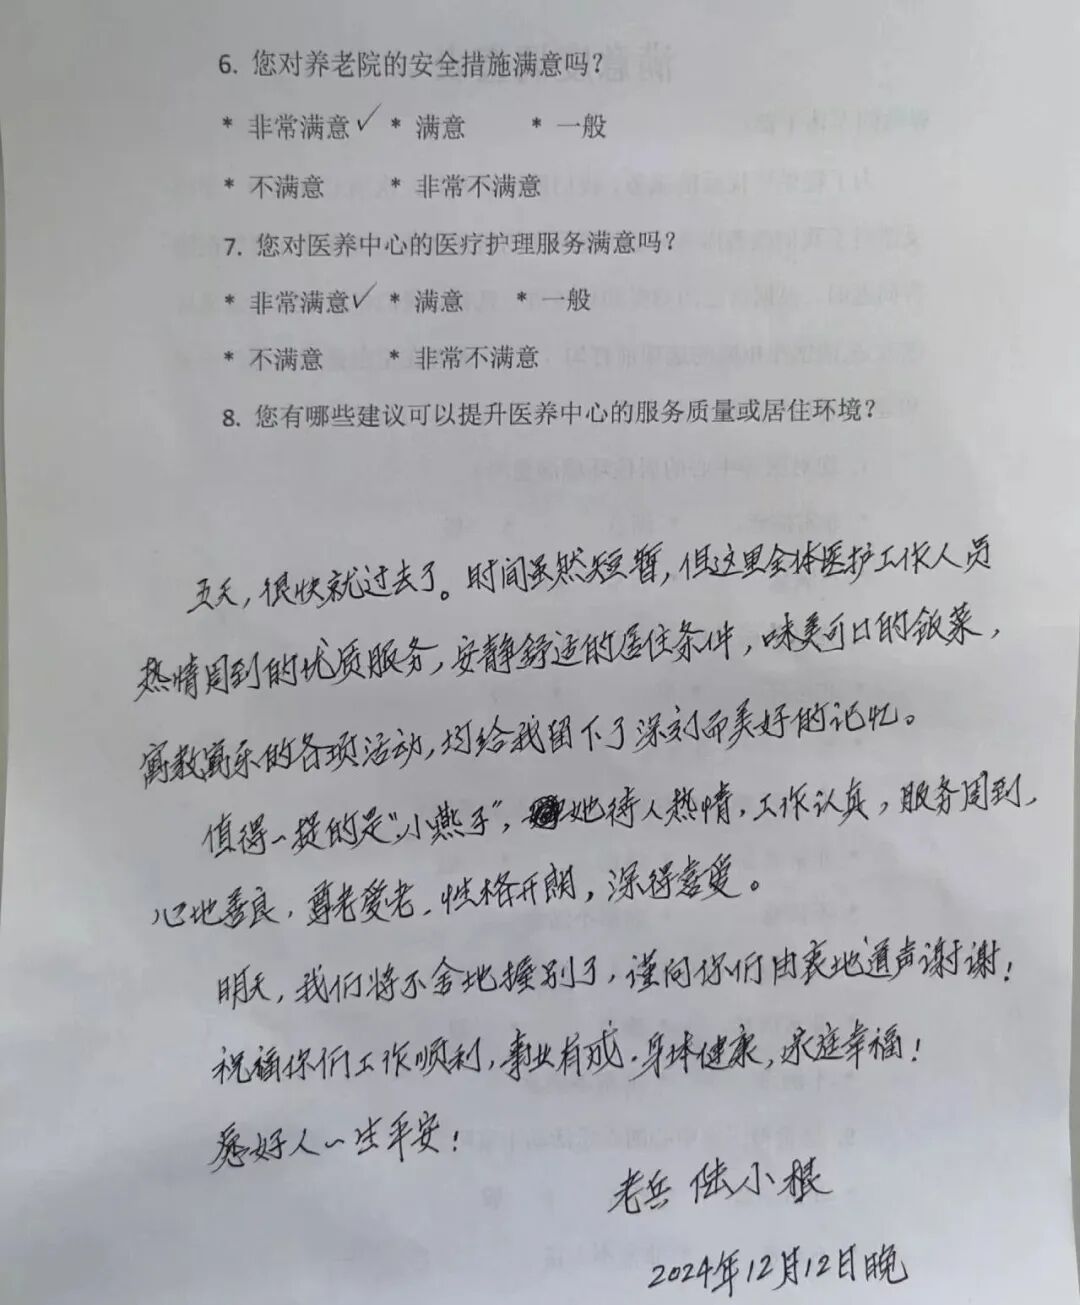 6. 您对养老院的安全措施满意吗？
* 非常满意✓ * 满意 * 一般
* 不满意 * 非常不满意
7. 您对医养中心的医疗护理服务满意吗？
* 非常满意✓ * 满意 * 一般
* 不满意 * 非常不满意
8. 您有哪些建议可以提升医养中心的服务质量或居住环境？
五天，很快就过去了。时间虽然短暂，但这里全体医护工作人员
热情周到的优质服务，安静舒适的居住条件，味美可口的饭菜，
寓教寓乐的各项活动，均给我留下了深刻而美好的记忆。
值得一提的是“小燕子”，她待人热情，工作认真，服务周到，
心地善良，尊老爱老，性格开朗，深得喜爱。
明天，我们将不舍地握别了，谨向你们由衷地道声谢谢！
祝福你们工作顺利，事业有成，身体健康，家庭幸福！
愿好人一生平安！
老兵 陆小根
2024年12月12日晚